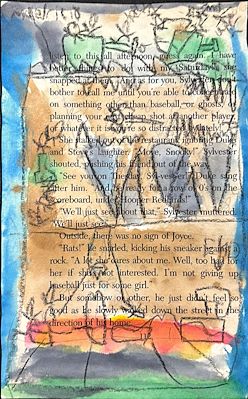 listen to this all afternoon, guess again. I have
better things to do with my Saturdays, she
snapped at them. "And as for you, Sylvester, don't
bother to call me until you're able to concentrate
on something other than baseball, or ghosts, or
planning your next cheap shot at another player
or what it is you're so distracted lately."
She stalked out of the restaurant, ignoring Duke
and Steve's laughter. "Move, Snooky!" Sylvester
shouted, pushing his friend out of the way.
"See you on Tuesday, Sylvester," Duke sang
after him. "Get ready for a row of 0s on the
scoreboard, under Hooper Redbirds!"
"We'll just see about that," Sylvester muttered.
"We'll just see."
Outside, there was no sign of Joyce.
"Rats!" He snarled, kicking his sneaker against a
rock. "A lot she cares about me. Well, too bad for
her if she's not interested. I'm not giving up
baseball just for some girl."
But somehow or other, he just didn't feel so
good as he slowly walked down the street in the
direction of his home.